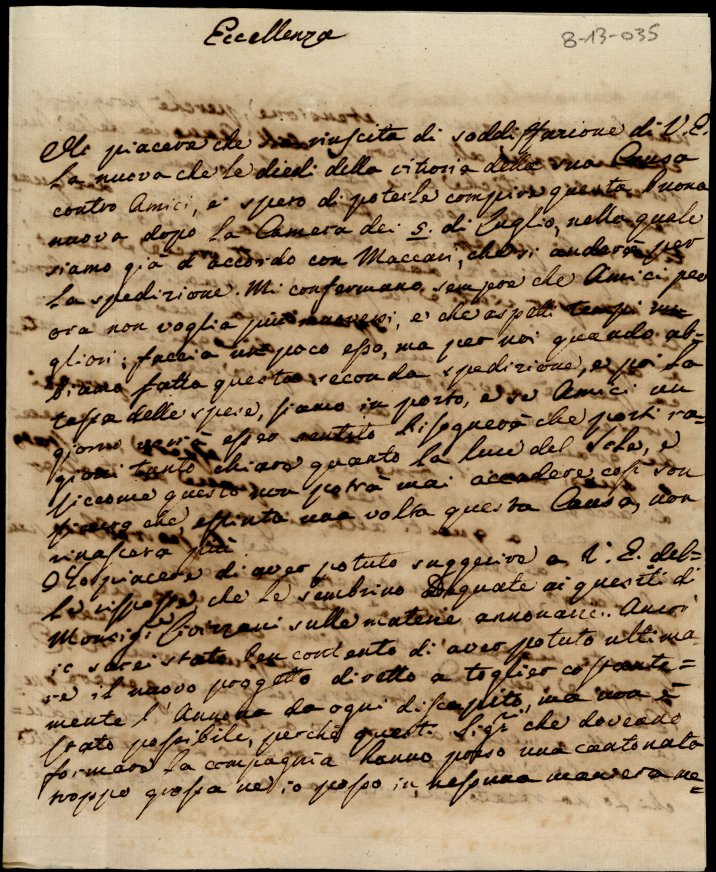 Eccellenza
8-13-035
Ho piacere che sia riuscita di soddisfazione di V. E.
la nuova che le diedi della vitoria della sua Causa
contro Amici, e spero di poterle compire questa buona
nuova dopo la Camera dei 5. di Luglio, nella quale
siamo già d'accordo con Maccari, che si anderà per
la spedizione. Mi confermano sempre che Amici per
ora non voglia più muoversi, e che aspetti tempi mi=
gliori; faccia un poco esso, ma per noi quando ab=
biamo fatta questa seconda spedizione, e poi la
tassa delle spese, siamo in porto, e se Amici un
giorno vorrà esser sentito bisognerà che porti ra=
gioni tanto chiare quanto la luce del Sole, e
siccome questo non potrà mai accadere così son
sicuro che, estinta una volta questa Causa, non
rinascerà più.
Ho piacere di aver potuto suggerire a V. E. del=
le risposte, che le sembrino adequate ai quesiti di
Monsigr. sulle materie annonarie. Ancor
io sarei stato ben contento di aver potuto ultima=
re il nuovo progetto diretto a toglier costante=
mente l'Annona da ogni discapito, ma non è
stato possibile, perchè questi Sigri. che doveano
formare la compagnia hanno preso una cantonata
troppo grossa ne io posso in nessuna maniera ne=